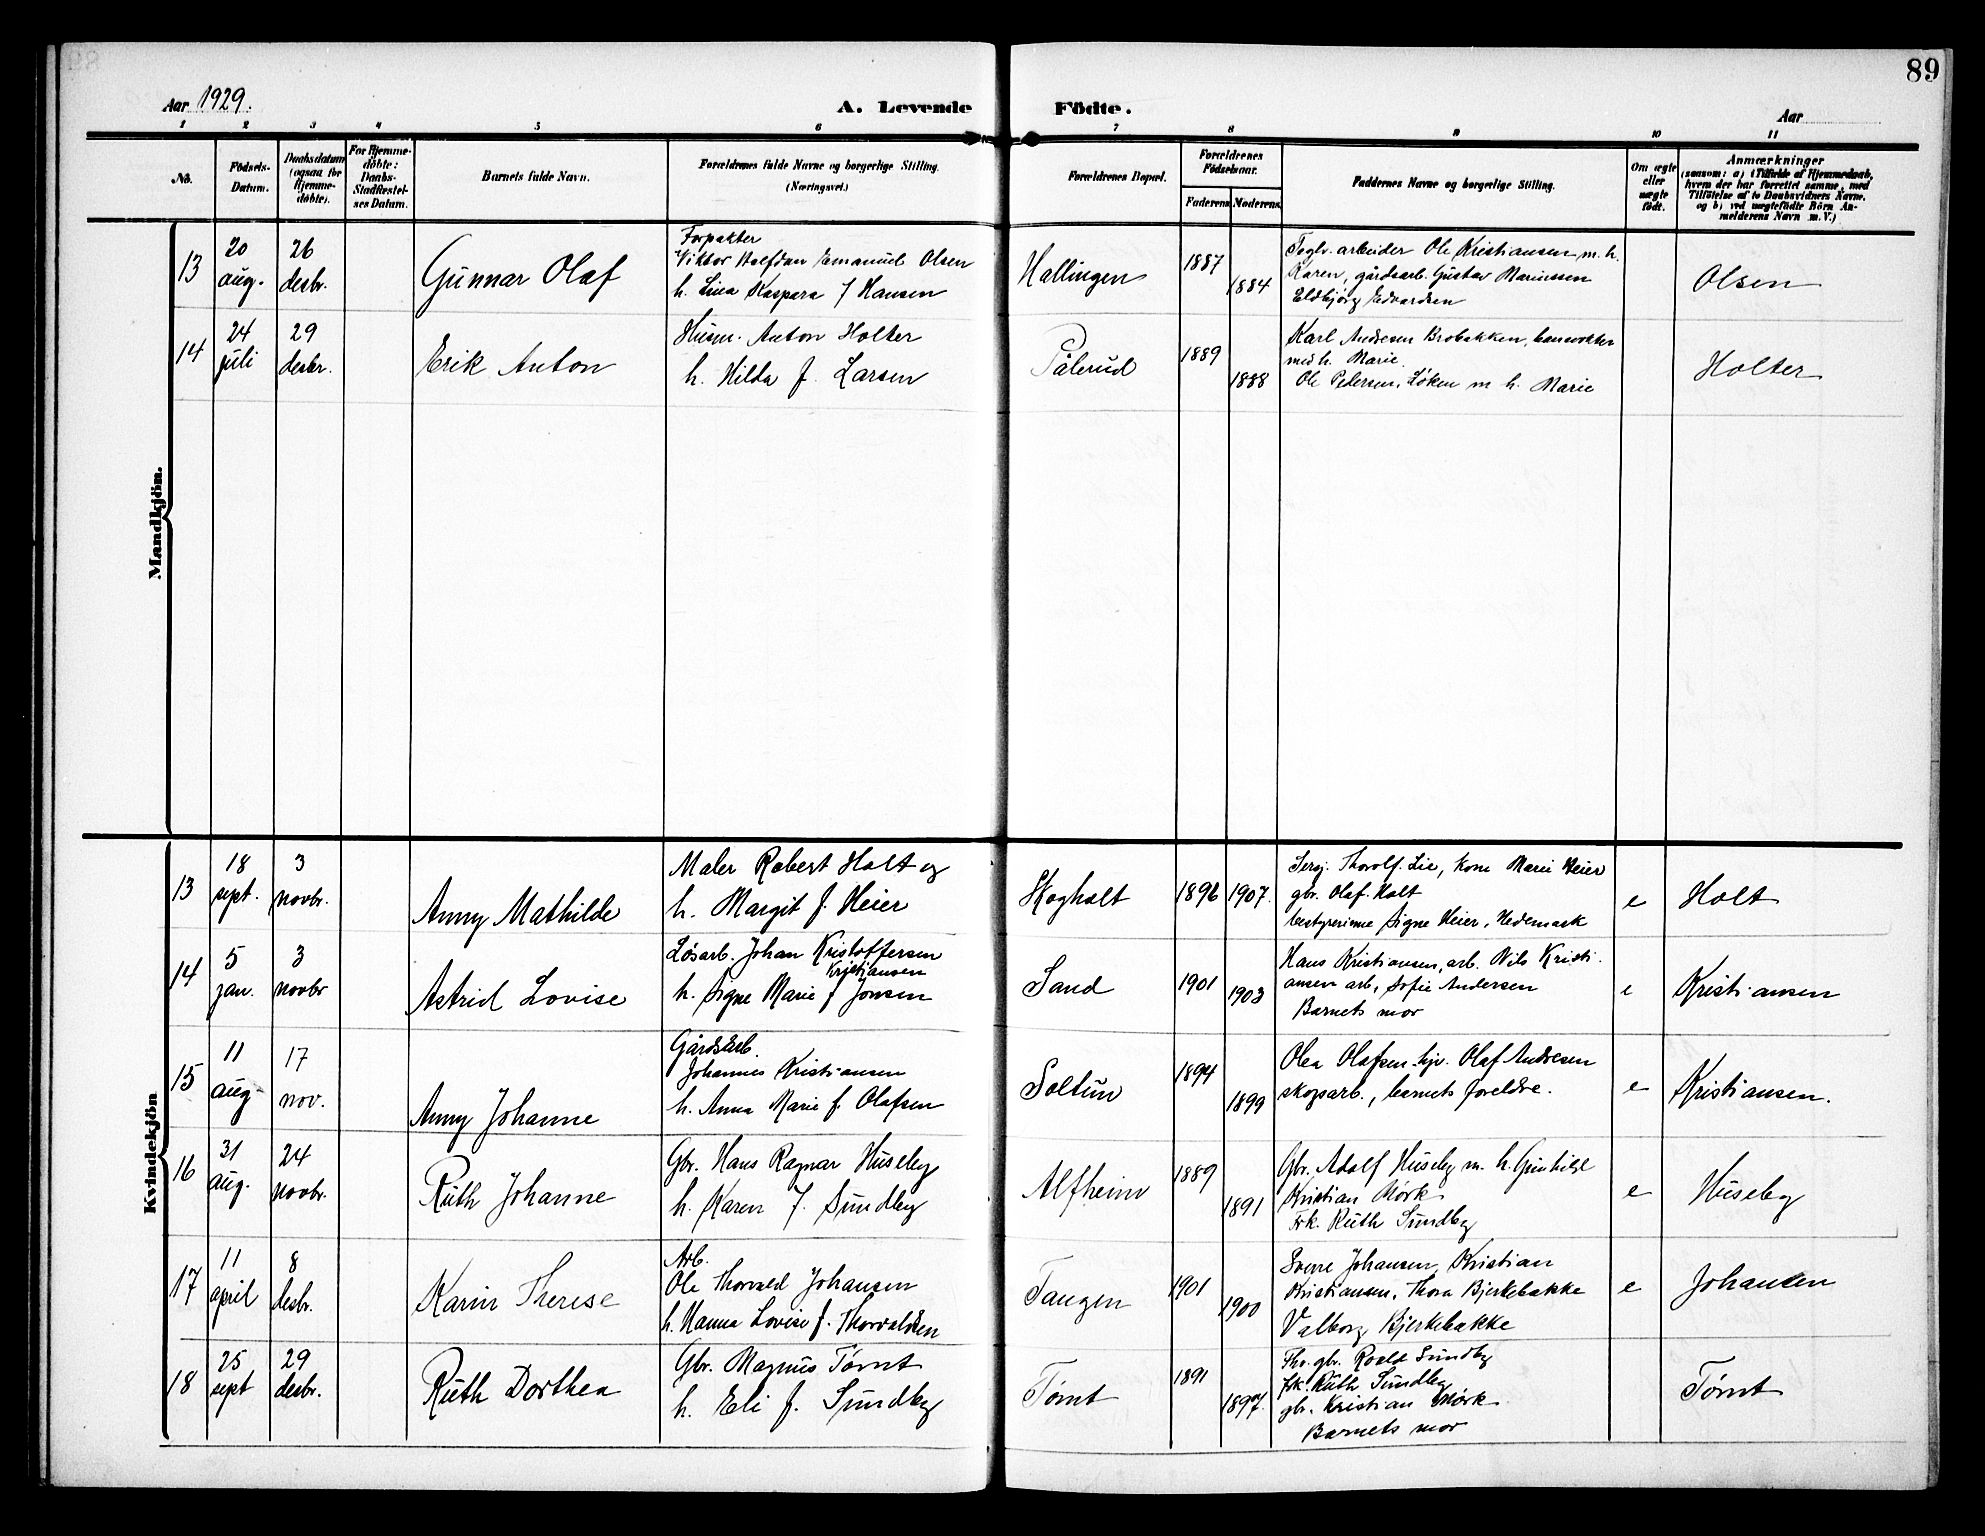 89
Aar 1929.
A. Levende Födte.
Aar
1 2 3 4 5 6 7 8 9 10 11
No.
Födsels-
Datum.
Daabsdatum
(ogsaa for
Hjemme-
döbte).
For Hjemme-
döbte:
Daabs-
Stadfæstel-
ses Datum.
Barnets fulde Navn.
Forældrenes fulde Navne og borgerlige Stilling.
(Næringsvei.)
Forældrenes Bopæl.
Forældrenes
Födselsaar.
Faderens Moderens
Faddernes Navne og borgerlige Stilling.
Om ægte
eller
uægte
födt.
Anmærkninger
(saasom: a) i Tilfælde af Hjemmedaab,
hvem der har forrettet samme, med
Tilföielse af to Daabsvidners Navne,
og b) ved uægtefödte Börn An-
melderens Navn m. V.)
Mandkjön.
13
20
aug.
26
desbr.
Gunnar Olaf
Forpakter
Viktor Halfdan Emanuel Olsen
h. Lina Kaspara f Hansen
Hallingen
1887
1884
Teglv. arbeider Ole Kristiansen m. h.
Karen, gårdsarb. Gustav Marinssen
Eldbjørg Edvardsen
Olsen
14
24
juli
29
desbr.
Erik Anton
Husm. Anton Holter
h. Hilda f. Larsen
Pålerud
1889
1888
Karl Andresen Brobakken, banevokter
med h. Marie
Ole Pedersen, Løken m h. Marie
Holter
Kvindekjön
13
18
sept.
3
novbr.
Anny Mathilde
Maler Robert Holt og
h. Margit f. Heier
Skogholt
1896
1907.
Serg. Thorolf Lie, kone Marie Heier
gbr. Olaf Holt
bestyrerinne Signe Heier, Hedemark
e
Holt
14
5
jan.
3
novbr
Astrid Lovise
Løsarb. Johan Kristoffersen
Kristiansen
h. Signe Marie f Jonsen
Sand
1901
1903
Hans Kristiansen, arb. Nils Kristi-
ansen arb, Sofie Andersen
Barnets mor
e
Kristiansen
15
11
aug.
17
nov.
Anny Johanne
Gårdsarb.
Johannes Kristiansen
h. Anna Marie f. Olafsen
Soltun
1894
1899
Olea Olafsen hjv. Olaf Andresen
skogsarb., barnets foreldre.
e
Kristiansen.
16
31
aug.
24
novbr.
Ruth Johanne
Gbr. Hans Ragnar Huseby
h. Karen f. Sundby
Alfheim
1889
1891
Gbr. Adolf Huseby m. h. Gunhild
Kristian Mørk
Frk. Ruth Sundby
e
Huseby
17
11
april
8
desbr.
Karin Therese
Arb.
Ole Thorvald Johansen
h. Hanna Lovise f. Thorvaldsen
Tangen
1901
1900
Sverre Johansen, Kristian
Kristiansen, Thora Bjerkebakke
Valborg Bjerkebakke
e
Johansen
18
25
sept
29
desbr.
Ruth Dorthea
Gbr. Magnus Tømt
h. Eli f. Sundby
Tømt
1891
1897.
Thv. gbr. Roald Sundby
frk. Ruth Sundby
gbr. Kristian Mørk
Barnets mor
Tømt